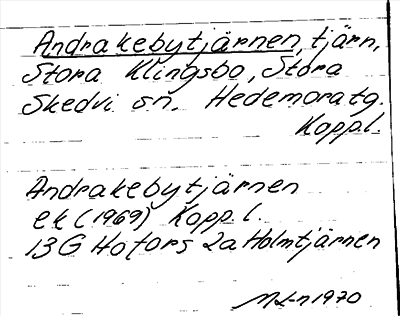 Andrakebytjärnen, tjärn,
Stora Klingsbo, Stora
Skedvi sn, Hedemora tg.
Koppl.
Andrakebytjärnen
ek (1969) Koppl.
13G Hofors 2a Holmtjärnen
MLn 1970